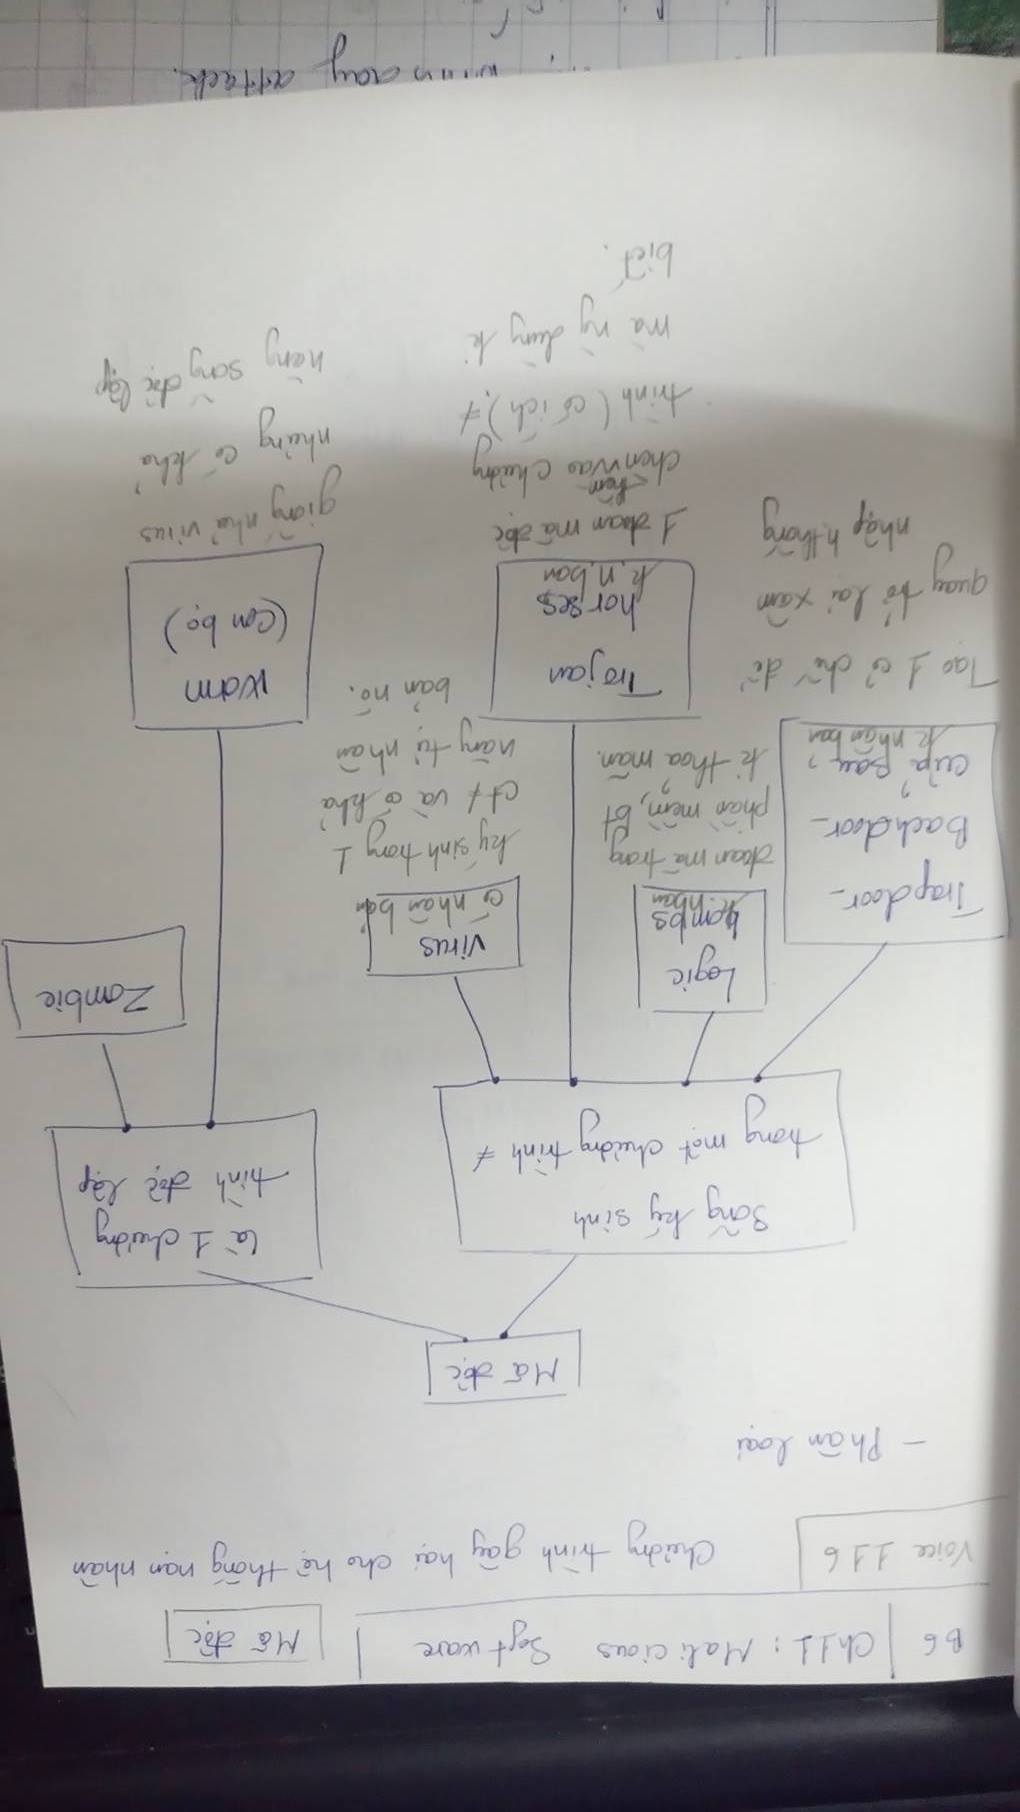 B6 Ch11: Malicious Software Mã độc
Voice 116
Chương trình gây hại cho hệ thống nạn nhân
- Phân loại
Mã độc
Sống ký sinh
trong một chương trình ≠
là 1 chương
trình độc lập
Trapdoor_
Backdoor_
cửa sau
k nhân bản
Tạo 1 cơ chế để
quay trở lại xâm
nhập h.thống
Logic
bombs
k. nhân
đoạn mã trong
phần mềm, bt
k thoả mãn.
Trojan
horses
k. n. bản
1 đoạn mã độc
chèn thêm vào chương
trình (có ích) ≠
mà ng dùng k
biết.
virus
có nhân bản
ký sinh trong 1
ct ≠ và có khả
năng tự nhân
bản nó.
Worm
(con bọ)
giống như virus
nhưng có khả
năng sống độc lập
Zombie
day attack.